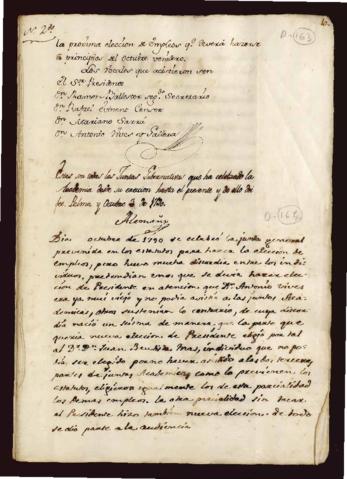 Nº 2º
10.
D-163
la proxima eleccion de Empleos qe devera hazerse
a principios de Octubre venidero.
Los Vocales que asistieron son
El Sor Presidente
Dn Ramon Ballester segdo Secretario
Dn Rafael Evinent Censor
Dn Mariano Sarrá
Dn Antonio Vives
Estas son todas las Juntas Subernativas que ha celebrado la
Academia desde su ereccion hasta el presente y de ello doi
fee. Palma y Octubre
Alemañy
D-163
Dia octubre de 1790 se celebró la junta general
prevenida en los estatutos para hacer la eleccion de
Empleos, pero huvo mucha discordia entre los indi
viduos, pretendian unos que se devia hacer elec
cion de Presidente en atencion que Dn Antonio Vives
era ya mui viejo y no podia asistir a las juntas Aca
demicas, otros sustenian lo contrario, de cuya discor
dia nació un sistema de manera, que la parte que
queria nueva eleccion de Presidente eligió por tal
al Dr Dn Juan Bautista Mas, individuo que no po
dia ser elegido por no haver asistido a las dos terceras
partes de juntas Academicas como lo previenen los
estatutos, eligieron igualmente los de esta parcialidad
los demas empleos. la otra parcialidad sin tocar
al Presidente hizo tambien nueva eleccion. de todo
se dió parte a la audiencia